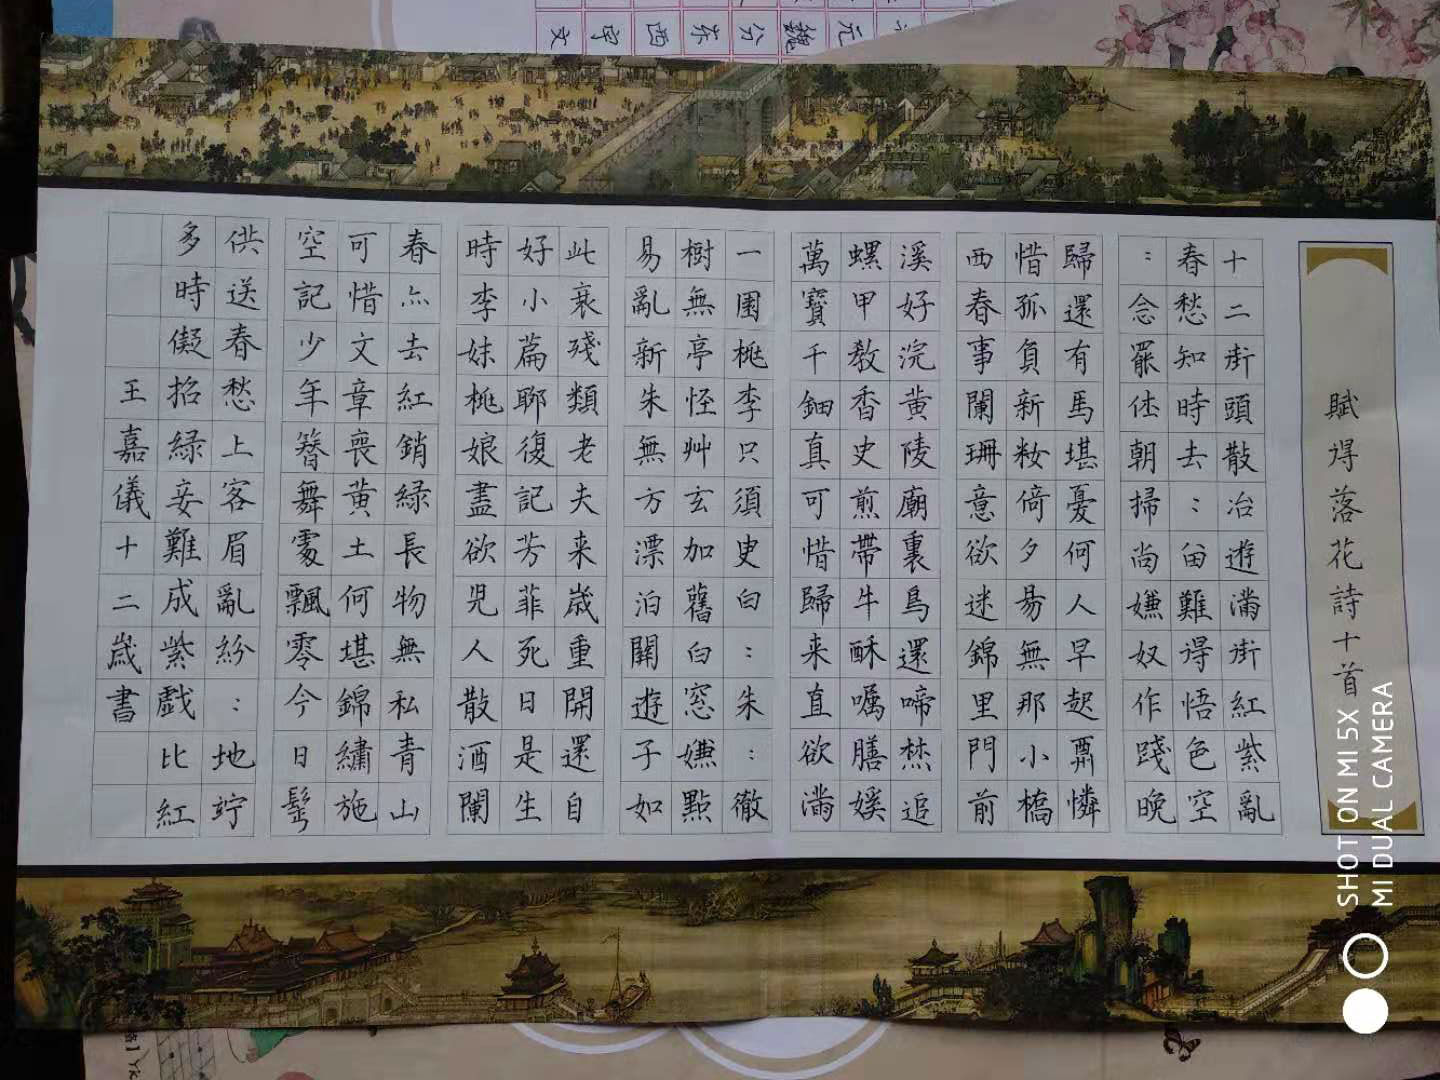 元魏分东西宇文
賦得落花詩十首
十二街頭散冶遊滿街紅紫亂
春愁知時去:留難得悟色空
:念罷休朝掃尚嫌奴作踐晚
歸還有馬堪憂何人早起憐
惜孤負新籹倚夕昜無那小橋
西春事闌珊意欲迷錦里門前
溪好浣黄陵廟裏鳥還啼焚追
螺甲教香史煎帶牛酥囑膳
萬寶千鈿真可惜歸来直欲滿
一園桃李只須臾白:朱:徹
樹無亭怪艸玄加舊白窓嫌點
易亂新朱無方漂泊關遊子如
此衰殘類老夫来歲重開還自
好小篇聊復記芳菲死日是生
時李妹桃娘盡欲兒人散酒闌
春亦去紅銷綠長物無私青山
可惜文章喪黄土何堪錦繡施
空記少年簪舞處飄零今日鬂
供送春愁上客眉亂紛:地竚
多時儗招綠妾難成紫戲比紅
王嘉儀十二歲書
SHOT ON MI 5X
MI DUAL CAMERA